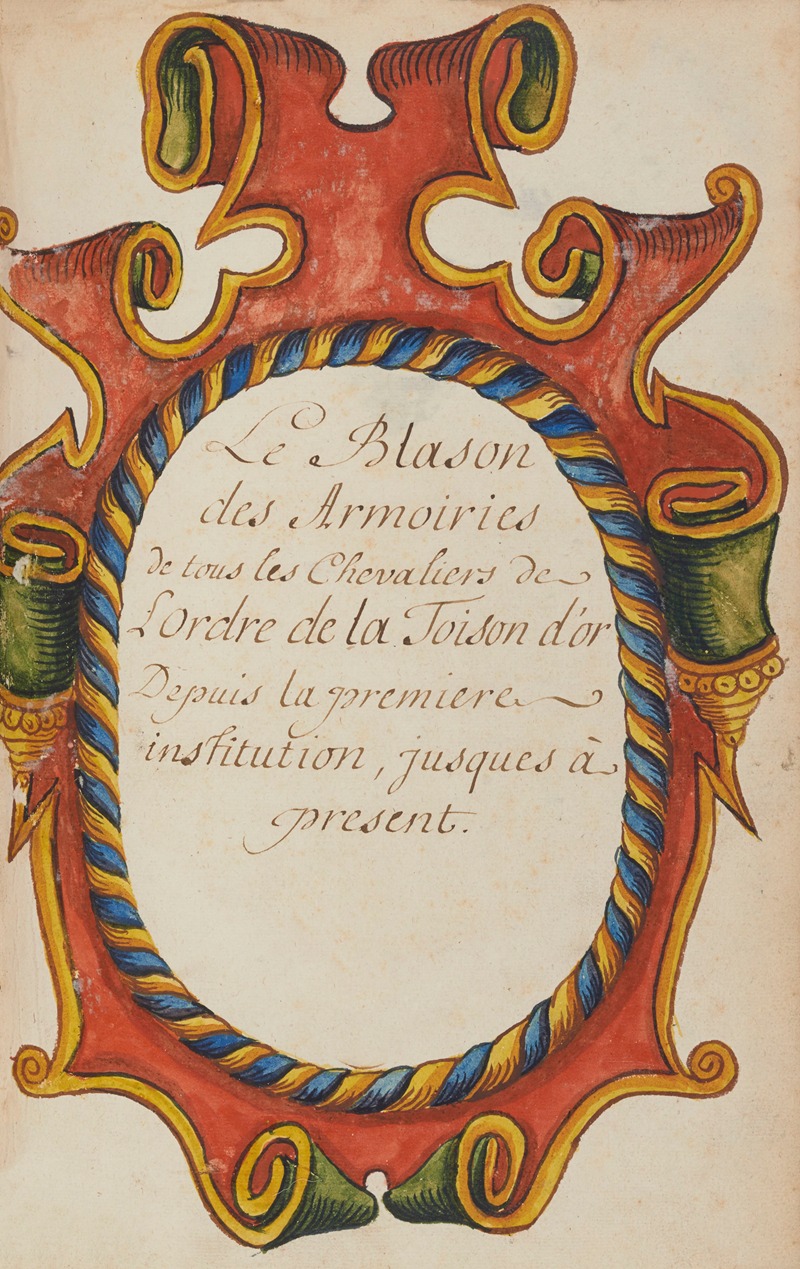 Le Blason
des Armoiries
de tous les Chevaliers de
L'Ordre de la Toison d'or
Depuis la premiere
institution, jusques à
present.